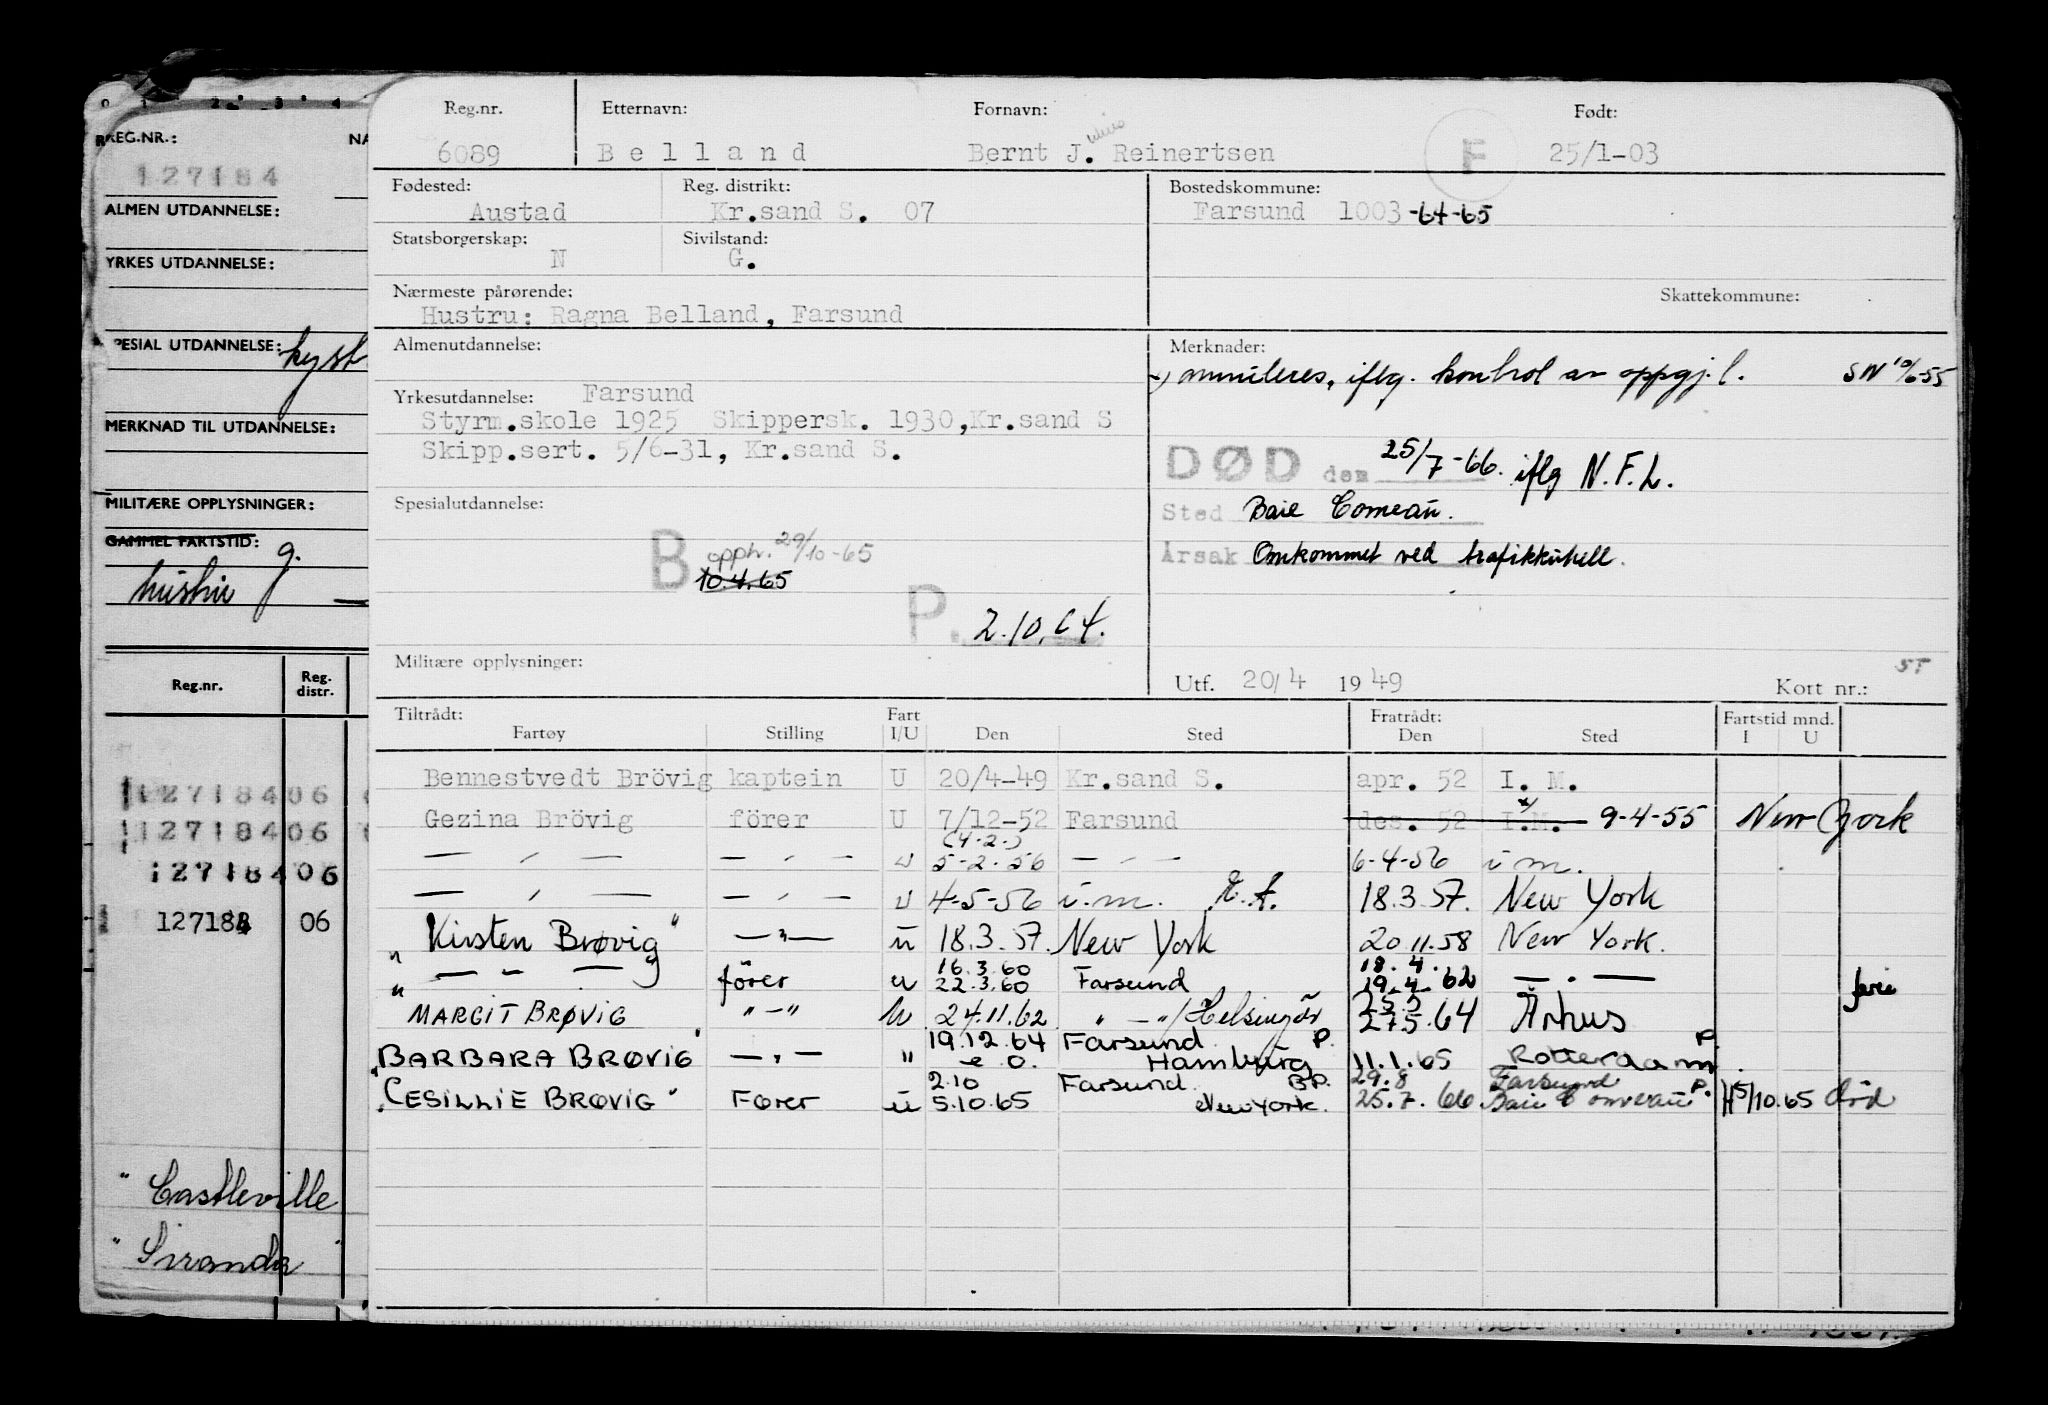 0 1 2 3 4
REG.NR.: NA
127184
ALMEN UTDANNELSE:
YRKES UTDANNELSE:
PESIAL UTDANNELSE: kyst
MERKNAD TIL UTDANNELSE:
MILITÆRE OPPLYSNINGER:
GAMMEL FARTSTID: g.
hustru —
Reg.nr. Reg. distr.
127184 06
127184 06
127184 06
127184 06
" Castleville
" Siranda "
Reg.nr. Etternavn: Fornavn: Født:
6089 Belland Bernt J. Reinertsen F 25/1-03
Fødested: Reg. distrikt: Bostedskommune:
Austad Kr.sand S. 07 Farsund 1003 -64-65
Statsborgerskap: Sivilstand:
N G.
Nærmeste pårørende: Skattekommune:
Hustru: Ragna Belland, Farsund
Almenutdannelse: Merknader:
x) annuleres, iflg. kontrol av oppgj.l. SN 10/6-55
Yrkesutdannelse: Farsund
Styrm.skole 1925 Skippersk. 1930,Kr.sand S
Skipp.sert. 5/6-31, Kr.sand S.
DØD den 25/7-66. iflg N.F.L.
Sted Baie Comeau.
Årsak Omkommet ved trafikkuhell.
Spesialutdannelse:
B opph. 29/10-65
10.4.65
P. 2.10.64.
Militære opplysninger:
Utf. 20/4 1949 Kort nr.: ST
Tiltrådt: Fart Fratrådt: Fartstid mnd.
Fartøy Stilling I/U Den Sted Den Sted I U
Bennestvedt Brövig kaptein U 20/4-49 Kr.sand S. apr. 52 I. M.
Gezina Brövig förer U 7/12-52 Farsund des. 52 I.M. x) 9-4-55 New York
— , — — , — u (4-2-) 5-2-56 — , — 6-4-56 i m.
— , — — , — u 4-5-56 i.m. 18.3.57. New York
" Kirsten Brøvig" — " — u 18.3.57. New York 20.11.58 New York.
" — " — " förer u 16.3.60 22.3.60 Farsund 18.4. 19.4.62 — . — ferie
MARGIT BRØVIG " — " u 24.11.62 " — " / Helsingör 25.5 27.5.64 Århus
"BARBARA BRØVIG" — " — " 19.12.64 Farsund P. Hamburg 11.1.65 P Rotterdam.
"CESILLIE BRØVIG" Fører u 2.10 5.10.65 Farsund BP. New York. 29.8 25.7.66 Farsund P. Baie Comeau H 5/10.65 död